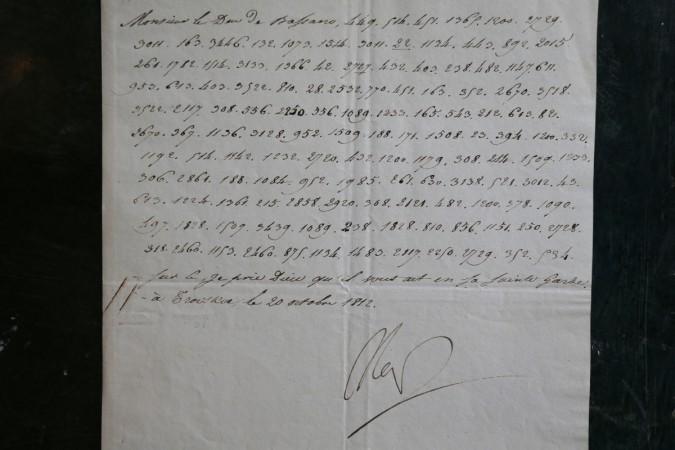 Monsieur le Duc de Bassano, 449. 514. 451. 1365. 1200. 2729.
3011. 163. 3446. 132. 1073. 1314. 3011. 22. 1134. 443. 892. 2015
261. 1782. 1514. 3133. 1366. 42. 2727. 432. 403. 238. 482. 1147. 611.
953. 643. 403. 3522. 810. 28. 2532. 770. 451. 163. 352. 2670. 3518.
3522. 2117. 308. 336. 2250. 336. 1089. 1233. 165. 543. 212. 643. 82.
3670. 367. 1136. 3128. 952. 1509. 188. 171. 1508. 23. 394. 1200. 332.
1192. 514. 1142. 1232. 2720. 432. 1200. 1179. 308. 214. 1509. 1233.
306. 2861. 188. 1084. 952. 1985. 261. 630. 3138. 521. 3012. 43.
643. 1224. 1361. 215. 2858. 2920. 308. 2121. 482. 1200. 378. 1090.
497. 1828. 1507. 3439. 1089. 238. 1828. 810. 836. 1151. 250. 2728.
318. 2460. 1153. 2460. 875. 1134. 1483. 2117. 2250. 2729. 352. 534.
Sur ce je prie Dieu qu'il vous ait en sa Sainte Garde.
à le 20 octobre 1812.